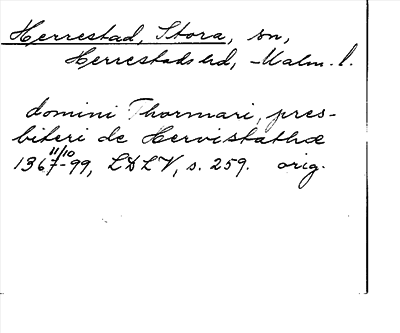 Herrestad, Stora, sn,
Herrestads hd, Malm. l.
domini Thormari, pres-
biteri de Hervistathæ
1367 11/10 -99, LDLV, s. 259. orig.